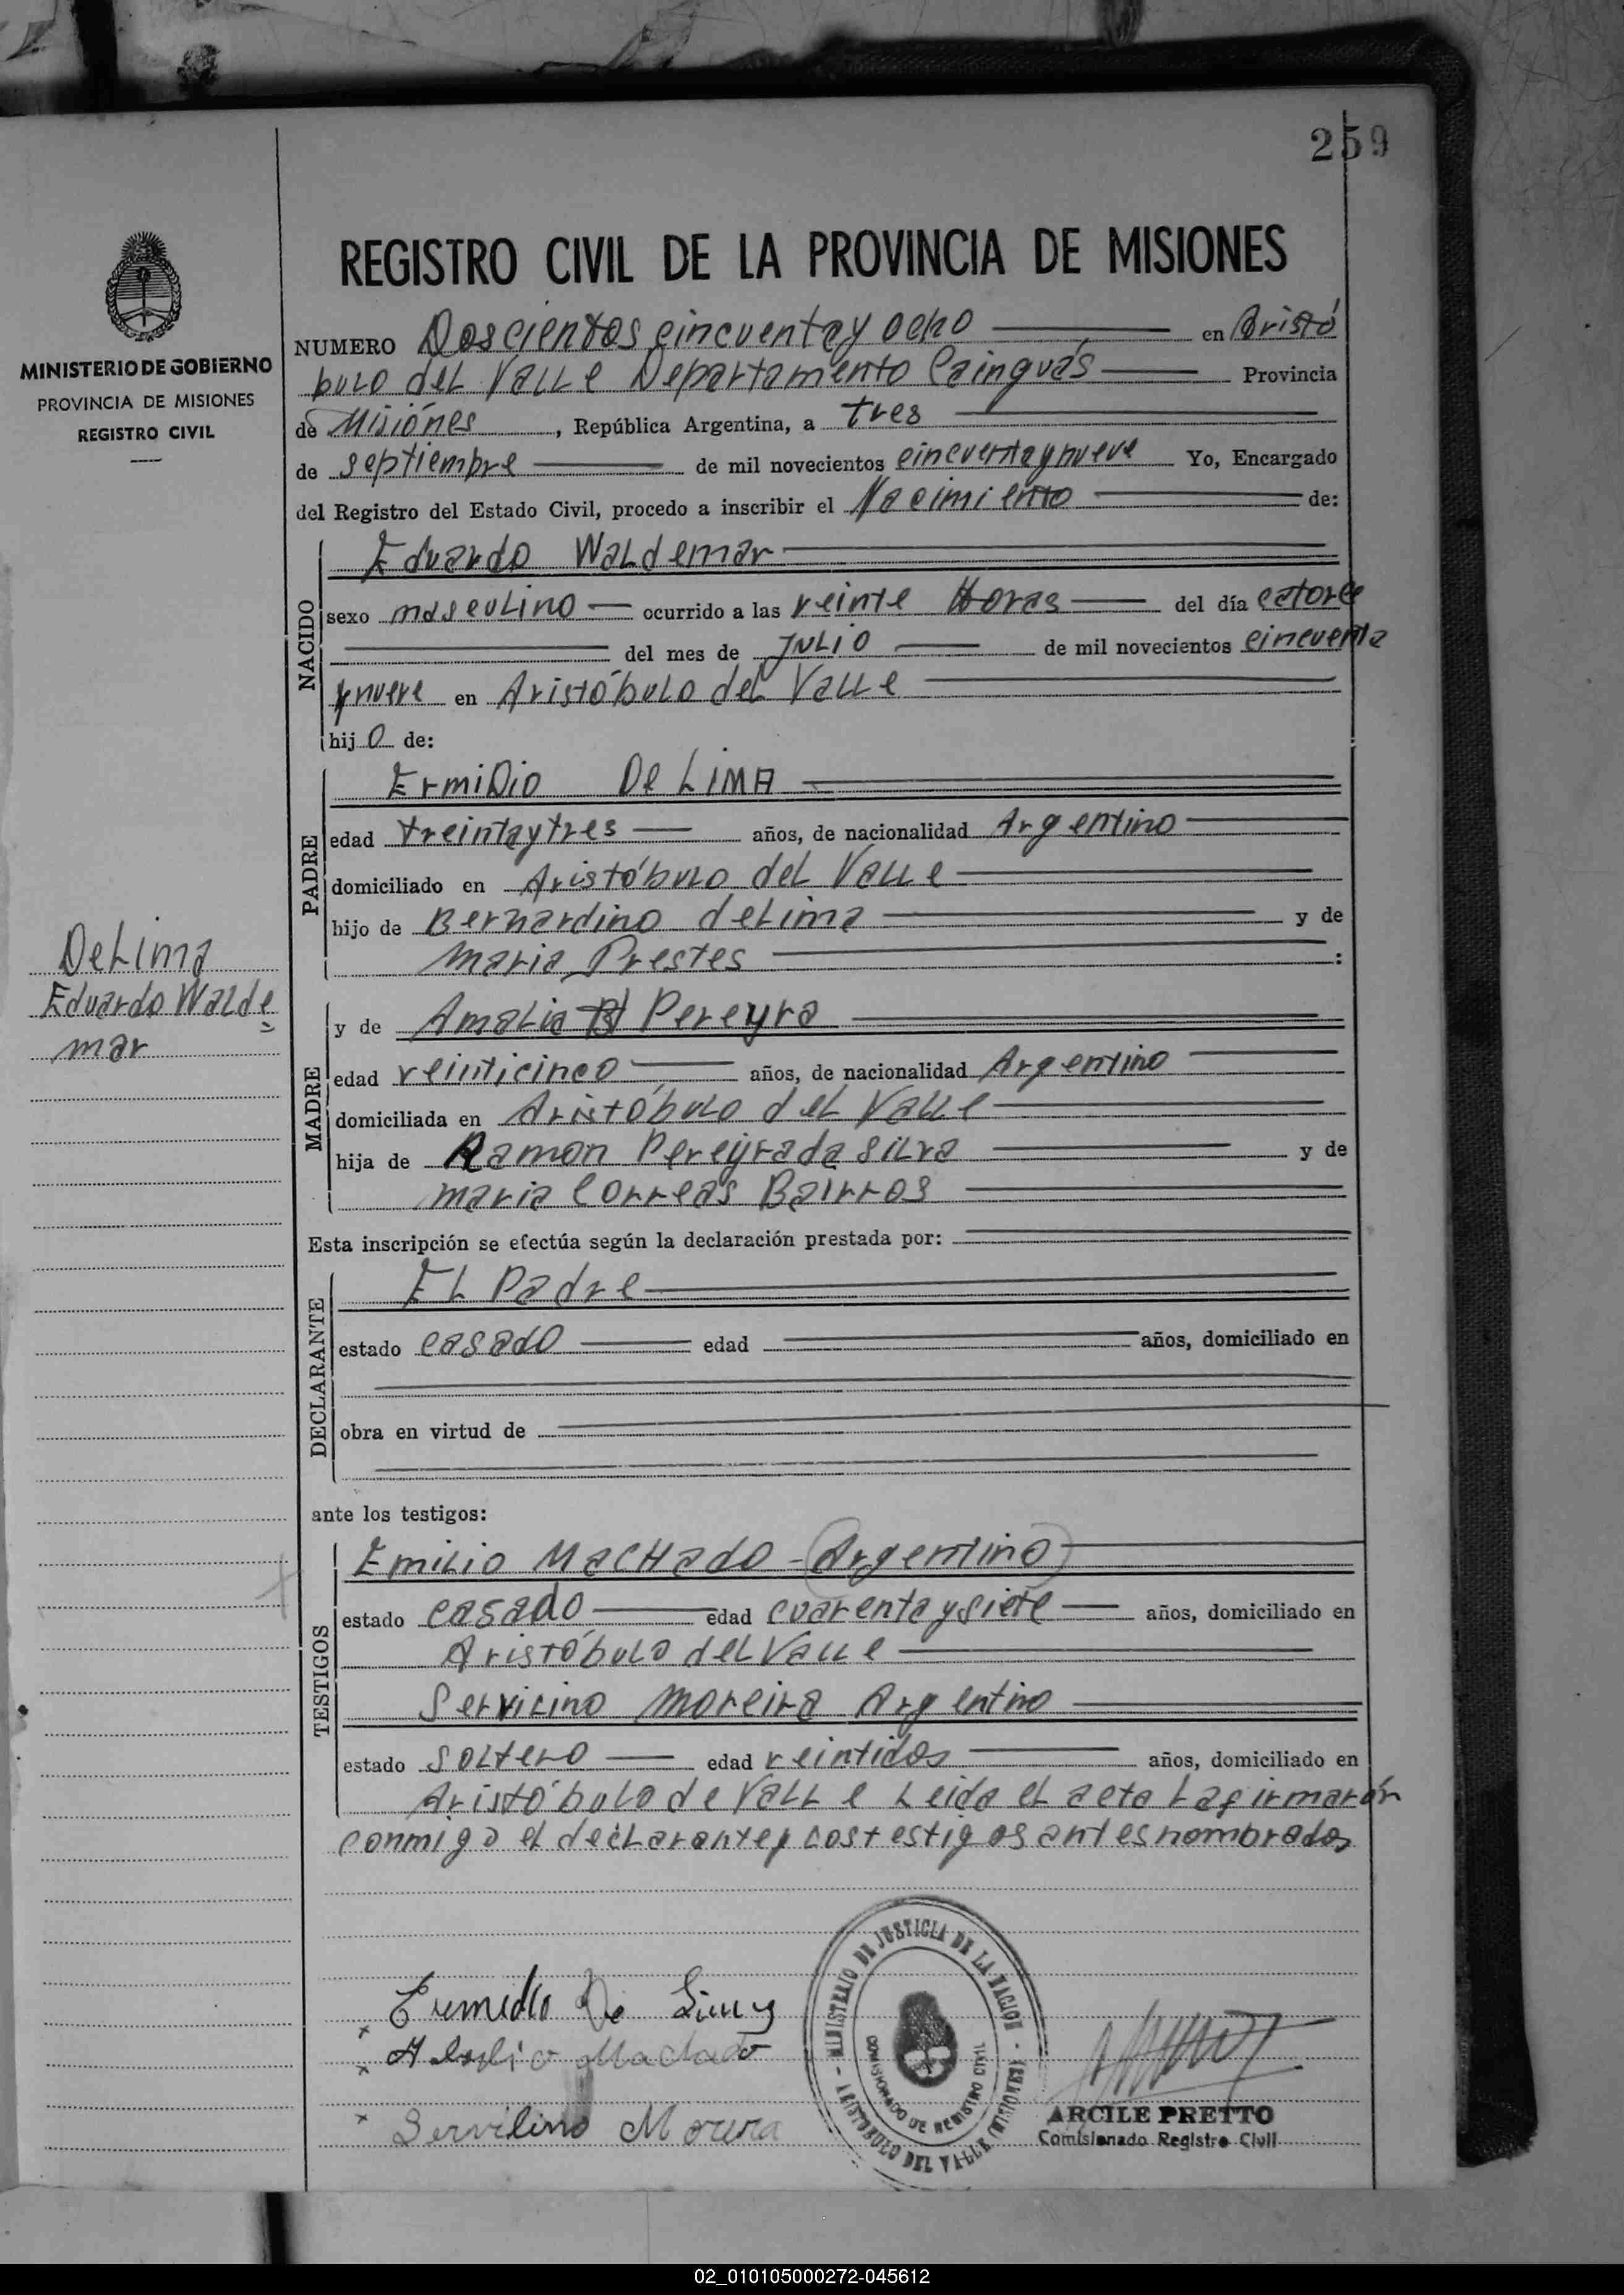 259
REGISTRO CIVIL DE LA PROVINCIA DE MISIONES
MINISTERIO DE GOBIERNO
PROVINCIA DE MISIONES
REGISTRO CIVIL
NUMERO Doscientos cincuenta y ocho en Aristó
bulo del Valle Departamento Cainguás Provincia
de Misiónes, República Argentina, a tres
de septiempre de mil novecientos cincuenta y nueve Yo, Encargado
del Registro del Estado Civil, procedo a inscribir el Nacimiento de:
NACIDO
Eduardo Waldemar
sexo masculino ocurrido a las veinte Horas del día catorce
del mes de JULIO de mil novecientos cincuenta
y nueve en Aristóbulo del Valle
hijo de:
PADRE
Ermidio De LIMA
edad treinta y tres años, de nacionalidad Argentino
domiciliado en Aristóbulo del Valle
hijo de Bernardino de Lima y de
Maria Prestes :
De Lima
Eduardo Walde
mar
MADRE
y de Amalia Pereyra
edad veinticinco años, de nacionalidad Argentino
domiciliada en Aristóbulo del Valle
hija de Ramon Pereyra da Silva y de
Maria Correas Bairros
Esta inscripción se efectúa según la declaración prestada por:
DECLARANTE
El Padre
estado casado edad años, domiciliado en
obra en virtud de
ante los testigos:
TESTIGOS
Emilio Machado - (Argentino)
estado casado edad cuarenta y siete años, domiciliado en
Aristóbulo del Valle
Servilino Moreira Argentino
estado soltero edad veintidos años, domiciliado en
Aristóbulo de Valle Leida el acta La firmarón
conmigo el declarante y los testigos antes nombrados
De Lima
Machado
Servilino Moreira
MINISTERIO DE JUSTICIA DE LA NACION
COMISIONADO DE REGISTRO CIVIL
ARISTOBULO DEL VALLE (MISIONES)
ARCILE PRETTO
Comisionado Registro Civil
02_010105000272-045612